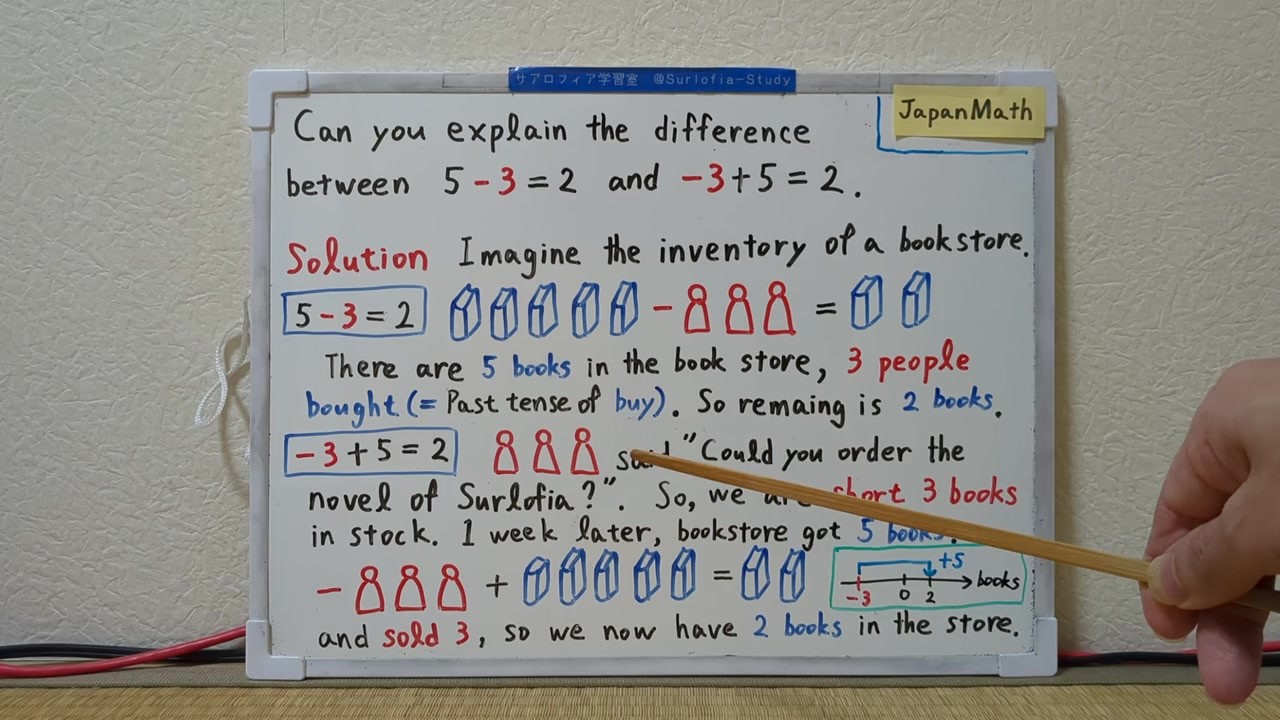 サアロフィア学習室 @Surlofia-Study
JapanMath
Can you explain the difference
between 5-3=2 and -3+5=2.
Solution Imagine the inventory of a book store.
5-3=2 - =
There are 5 books in the book store, 3 people
bought (= Past tense of buy). So remaing is 2 books.
-3+5=2 said "Could you order the
novel of Surlofia?". So, we are short 3 books
in stock. 1 week later, bookstore got 5 books.
- + =
+5
books
-3 0 2
and sold 3, so we now have 2 books in the store.